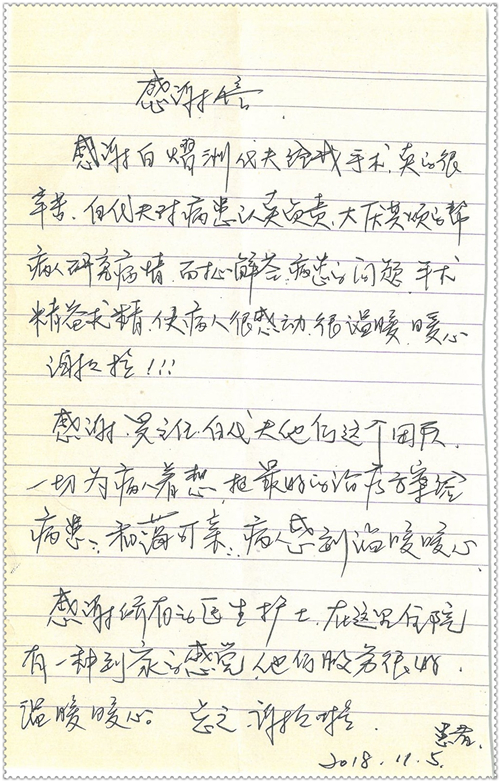 感谢信
感谢白熠洲代夫给我手术,真的很
辛苦。白代夫对病患认真负责,不厌其烦的帮
病人研究病情,耐心解答病患的问题,手术
精益求精,使病人很感动,很温暖,暖心
谢谢!!!
感谢主任白代夫他们这个团队,
一切为病人着想,把最好的治疗方案给
病患,和蔼可亲,病人感到温暖暖心
感谢所有的医生护士,在这里住院
有一种到家的感觉,他们服务很好,
温暖暖心。总之谢谢
患者
2018.11.5.